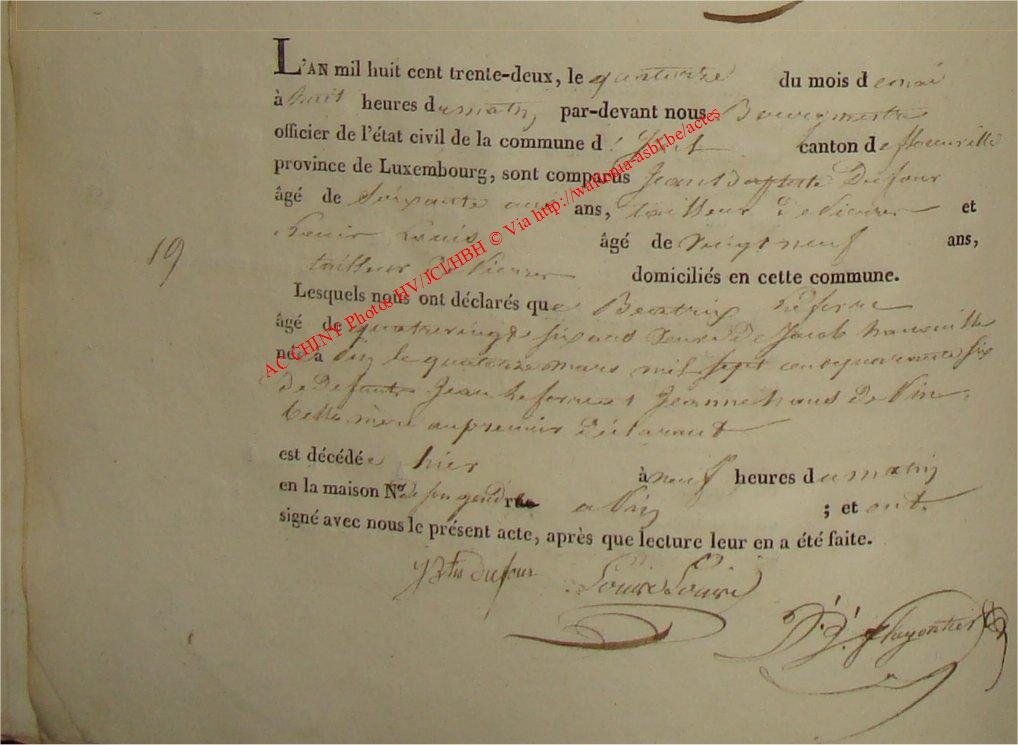 L'AN mil huit cent trente-deux, le quatorze du mois de mai
à huit heures du matin par-devant nous Bourgmestre
officier de l'état civil de la commune d' canton de florenville
province de Luxembourg, sont comparus Jean Baptiste Dufour
âgé de Soixante ans, tailleur de Pierres et
Louis âgé de vingt neuf ans,
19
tailleur de Pierres domiciliés en cette commune.
Lesquels nous ont déclarés que Beatrix
âgé de quatrevingt six ans veuve de Jacob
née a le quatorze mars mil sept cent quarante six
de defunts Jean et Jeanne de
belle mère au premier déclarant
est décédée hier à neuf heures du matin
en la maison No. de son gendre a ; et ont
signé avec nous le présent acte, après que lecture leur en a été faite.
JBte dufour Louis
AC CHINY Photos HV/JCL/HBH © Via http://wallonia-asbl.be/actes